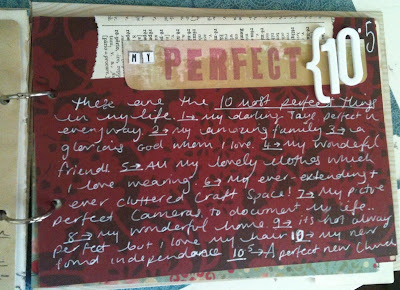 MY PERFECT {10.5
these are the 10 most perfect things
in my life. 1→ my darling Taye perfect in
every way. 2→ my amazing family 3→ a
glorious God whom I love. 4→ my wonderful
friends 5→ All my lovely clothes which
I love wearing. 6→ my ever-extending +
ever cluttered Craft Space! 7→ My picture
perfect Cameras, to document my life..
8→ my wonderful home. 9→ its not always
perfect but i love my hair 10→ my new
found independance 10.5→ A perfect new Church